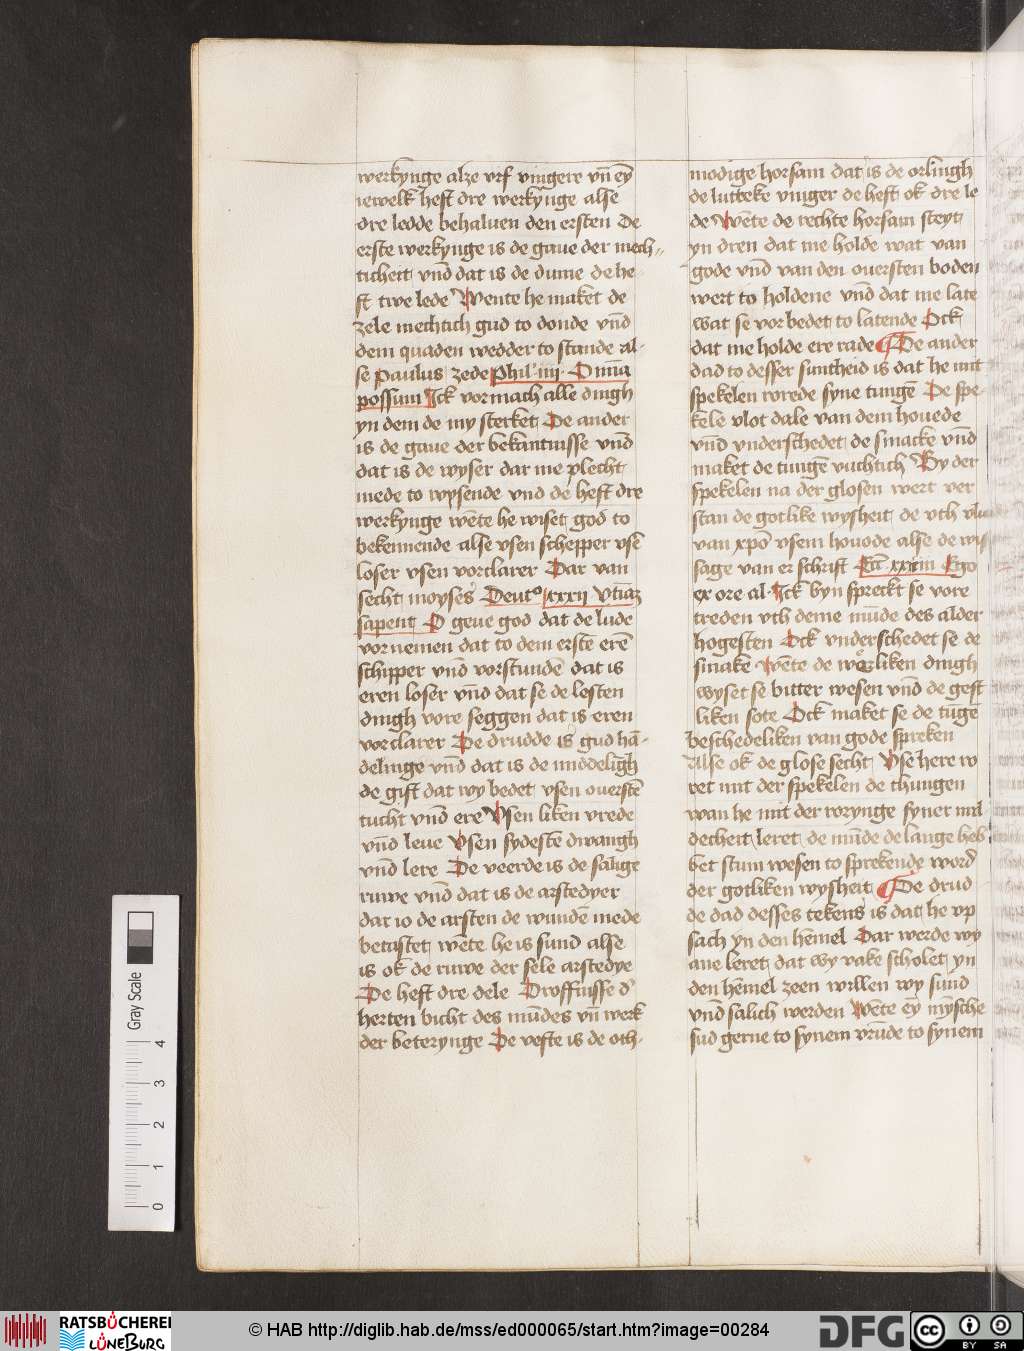 werkynge alze vrf vingere vn̄ ey̅
iewelk heft dre werkynge alse
dre ledde behaluen den ersten De
erste werkynge is de gaue der mech-
ticheit vnd̄ dat is de dume de he-
ft twe lede Wente he maket de
zele mechtich gud to donde vnd̄
dem quaden wedder to stande al-
se paulus zede Phil' iiii Om̄ia
possum Ick vormach alle dingh
yn dem de my sterket De ander
is de gaue der bekantnisse vnd̄
dat is de wyser dar me plecht
mede to wysende vnd de heft dre
werkynge wēte he wiset god to
bekennende alse vsen schepper vsē
loser vsen vorclarer Dar van
secht moyses Deut° xxxii vtinā
sapent O geue god dat de lude
vornemen dat to dem erstē erē
schipper vnd̄ vorstundē dat is
eren loser vnd̄ dat se de lesten
dingh vore seggen dat is eren
vorclarer De drudde is gud hā-
delinge vnd̄ dat is de middeligh
de gift dat wy bedet vsen ouerstē
tucht vnd̄ ere Vsen liken vrede
vnd̄ leue Vsen sydestē dwangh
vnd̄ lere De veerde is de salige
ruwe vnd̄ dat is de arstedyer
dar io de arsten de wundē mede
betastet wēte he is sund alse
is ok de ruwe der sele arstedye
De heft dre dele Droffnisse d'
herten bicht des mūdes vn̄ werk
der beterynge De vefte is de oth-
modige horsam dat is de orlingh
de lutteke vinger de heft ok dre le
de Wēte de rechte horsam steyt
yn dren dat me holde wat van
gode vnd̄ van den ouersten boden
wert to holdene vnd̄ dat me late
wat se vorbedet to latende Ock
dat me holde ere rade De ander
dad to desser suntheid is dat he mit
spekelen rorede syne tungē De spe-
kele vlot dale van dem houede
vnd̄ vnderschedet de smacke vnd̄
maket de tungē vuchtich By der
spekelen na der glosen wert ver
stan de gotlike wysheit de vth
van xpō vsem houode alse de
sage van er schrift Eccī xxiiii Ego
ex ore al Ick byn spreckt se vore
treden vth deme mūde des alder
hogesten Ock vnderschedet se de
smake wēte de werliken dingh
wyset se bitter wesen vnd̄ de gest
liken sote Ock maket se de tūgē
beschedeliken van gode spreken
Alse ok de glose secht Vse here ro
ret mit der spekelen de thungen
wan he mit der rorynge syner mil
decheit leret de mūde de lange heb
bet stum wesen to sprekende word
der gotliken wysheit De drud
de dad desses tekens is dat he vp
sach yn den hēmel Dar werde wy
ane leret dat wy vake scholet yn
den hēmel zeen willen wy sund
vnd̄ salich werden Wēte ey̅ mȳsche
sud gerne to synem vrūde to synem
Gray Scale
4
3
2
1
0
RATSBÜCHEREI
LÜNEBURG
© HAB http://diglib.hab.de/mss/ed000065/start.htm?image=00284
DFG
cc
BY SA